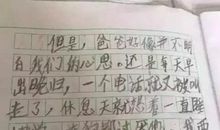 但是，爸爸好像并不明
白我们的心思。还是每天早
出晚归，一个电话就又被叫
走了，休息天就想着一直睡